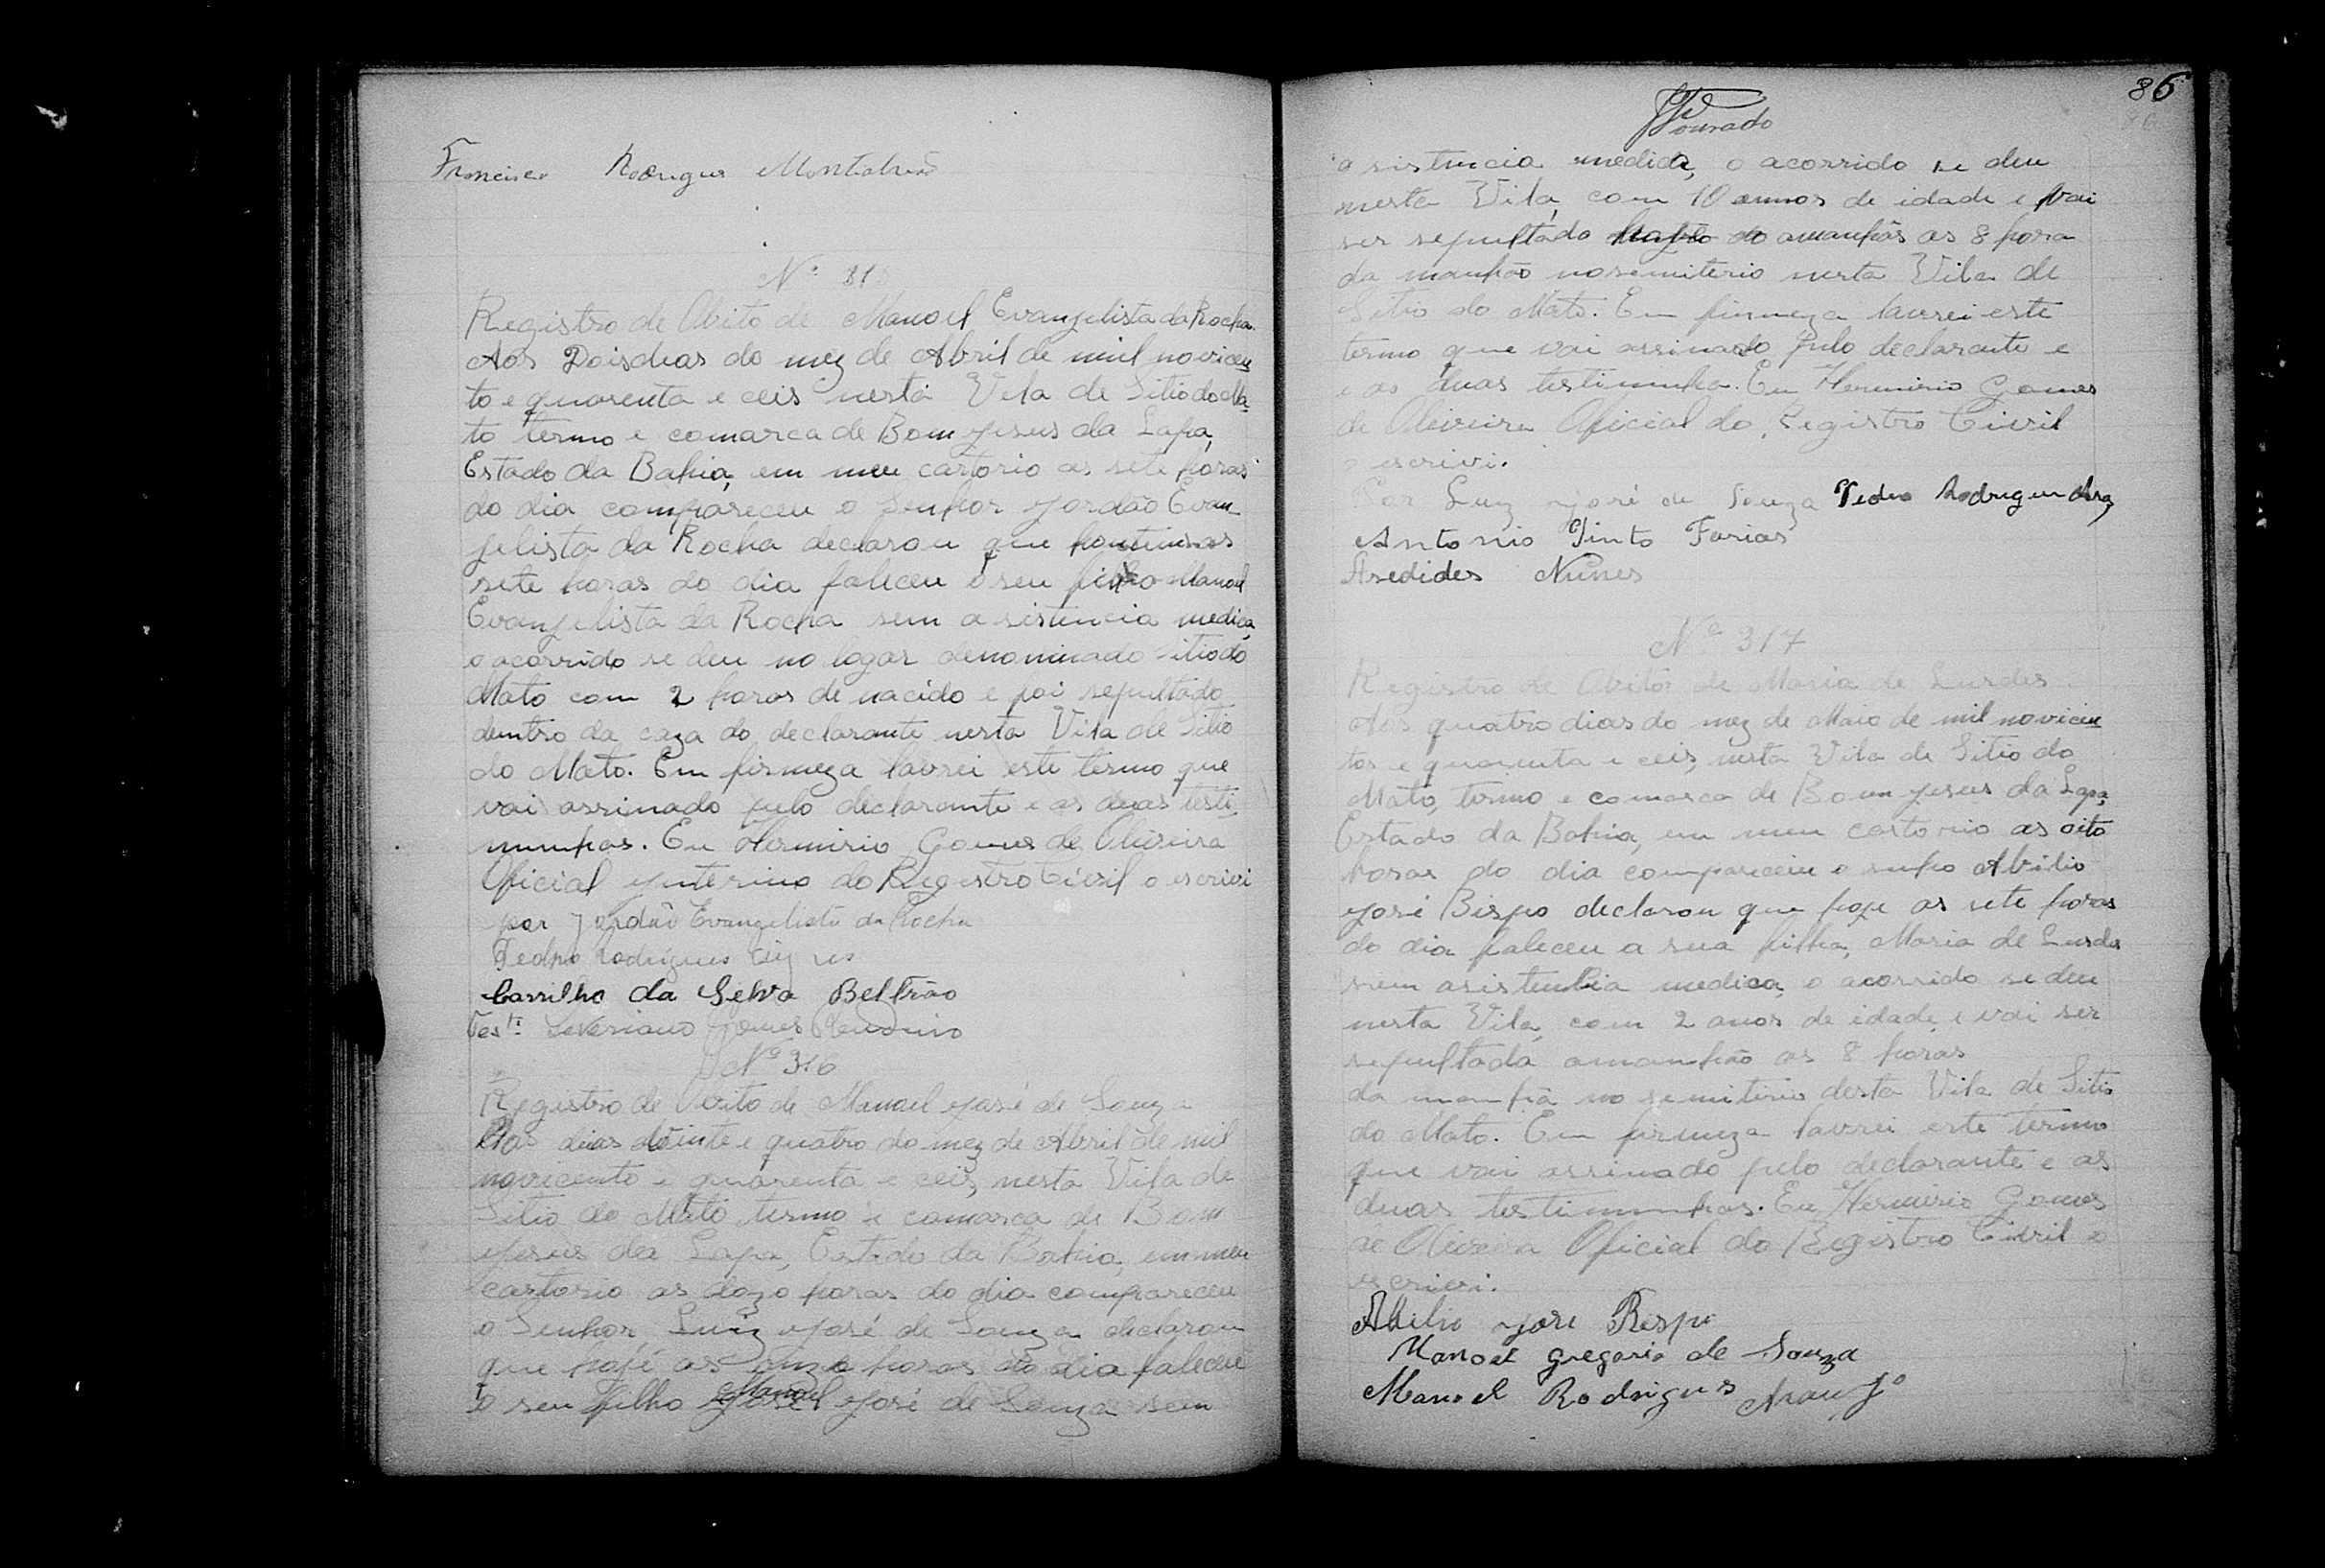 Francisco Rodrigues Montalvão
Nº 31
Registro de Obito de Manoel Evangelista da Rocha.
Aos Dois dias do mez de Abril de mil novicen
to e quarenta e ceis nesta Vila de Sitio do Ma
to termo e comarca de Bom Jesus da Lapa,
Estado da Bahia, em meu cartorio as sete horas
do dia compareceu o Senhor Jordão Evan
jelista da Rocha declarou que hontem as
sete horas do dia faleceu o seu filho Manoel
Evanjelista da Rocha sem a sistencia medica,
o acorrido se deu no logar denominado Sitio do
Mato com 2 horas de nacido e foi sepultado
dentro da caza do declarante nesta Vila de Sitio
do Mato. Em firmeza lavrei este termo que
vai assinado pelo declarante e as duas teste
munhas. Eu Hermirio Gomes de Oliveira
Oficial ynterino do Registro Civil o escrivi
por Jordão Evangelista da Rocha
Pedro Rodrigues
Carrilho da Selva Beltrão
Testi Severiano Gomes
Nº 316
Registro de Obito de Manoel José de Souza
Aos dias vinte e quatro do mez de Abril de mil
novicento e quarenta e ceis, nesta Vila de
Sitio do Mato termo e comarca de Bom
Jesus da Lapa, Estado da Bahia, em meu
cartorio as doze horas do dia compareceu
o Senhor, Luiz José de Souza declarou
que hoje as onze horas do dia faleceu
o seu filho Manoel José de Souza sem
86
Dourado
a sistencia medica, o acorrido se deu
nesta Vila, com 10 annos de idade e vai
ser sepultado amanhãs as 8 hora
da manhão no semiterio nesta Vila de
Sitio do Mato. Em firmeza lavrei este
termo que vai assinado pelo declarante e
e as duas testimunha. Eu Hermirio Gomes
de Oliveira Oficial do Registro Civil
o escrivi.
Por Luiz José de Souza Pedro Rodrigues
Antonio Pinto Farias
Asedides Nunes
Nº 317
Registro de Obito de Maria de Lurdes
Aos quatro dias do mez de Maio de mil novicen
tos e quarenta e ceis, nesta Vila de Sitio do
Mato, termo e comarca de Bom Jesus da Lapa,
Estado da Bahia, em meu cartorio as oito
horas do dia compareceu o senho Abilio
José Bispo declarou que hoje as sete horas
do dia faleceu a sua filha, Maria de Lurdes
sem asistencia medica, o acorrido se deu
nesta Vila, com 2 anos de idade, e vai ser
sepultada amanhão as 8 horas
da manhã no semiterio desta Vila de Sitio
do Mato. Em firmeza lavrei este termo
que vai assinado pelo declarante e as
duas testimunhas. Eu Hermirio Gomes
de Oliveira Oficial do Registro Civil o
escrivi.
Abilio José Bispo
Manoel Gregorio de Souza
Manoel Rodrigues Araujo